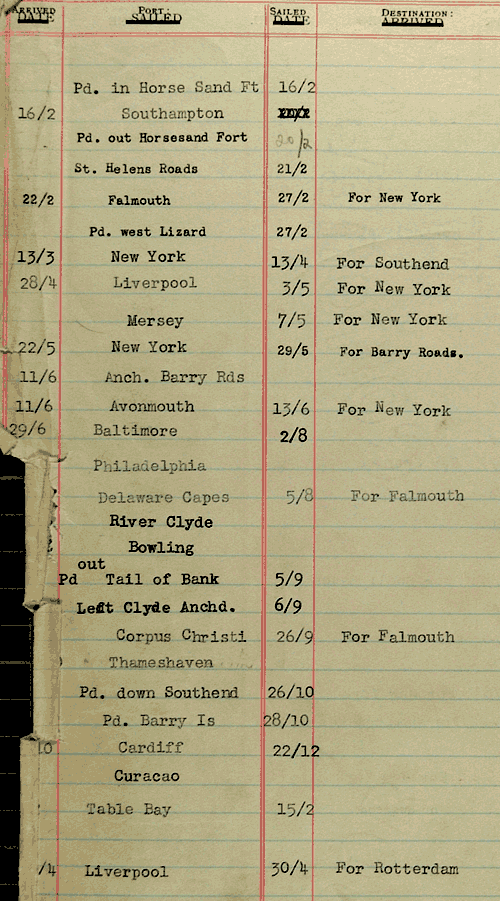 ARRIVED DATE PORT: SAILED SAILED DATE DESTINATION: ARRIVED
Pd. in Horse Sand Ft 16/2
16/2 Southampton
Pd. out Horsesand Fort 20/2
St. Helens Roads 21/2
22/2 Falmouth 27/2 For New York
Pd. west Lizard 27/2
13/3 New York 13/4 For Southend
28/4 Liverpool 3/5 For New York
Mersey 7/5 For New York
22/5 New York 29/5 For Barry Roads.
11/6 Anch. Barry Rds
11/6 Avonmouth 13/6 For New York
29/6 Baltimore 2/8
Philadelphia
Delaware Capes 5/8 For Falmouth
River Clyde
Bowling
out
Pd Tail of Bank 5/9
Left Clyde Anchd. 6/9
Corpus Christi 26/9 For Falmouth
Thameshaven
Pd. down Southend 26/10
Pd. Barry Is 28/10
10 Cardiff 22/12
Curacao
Table Bay 15/2
/4 Liverpool 30/4 For Rotterdam